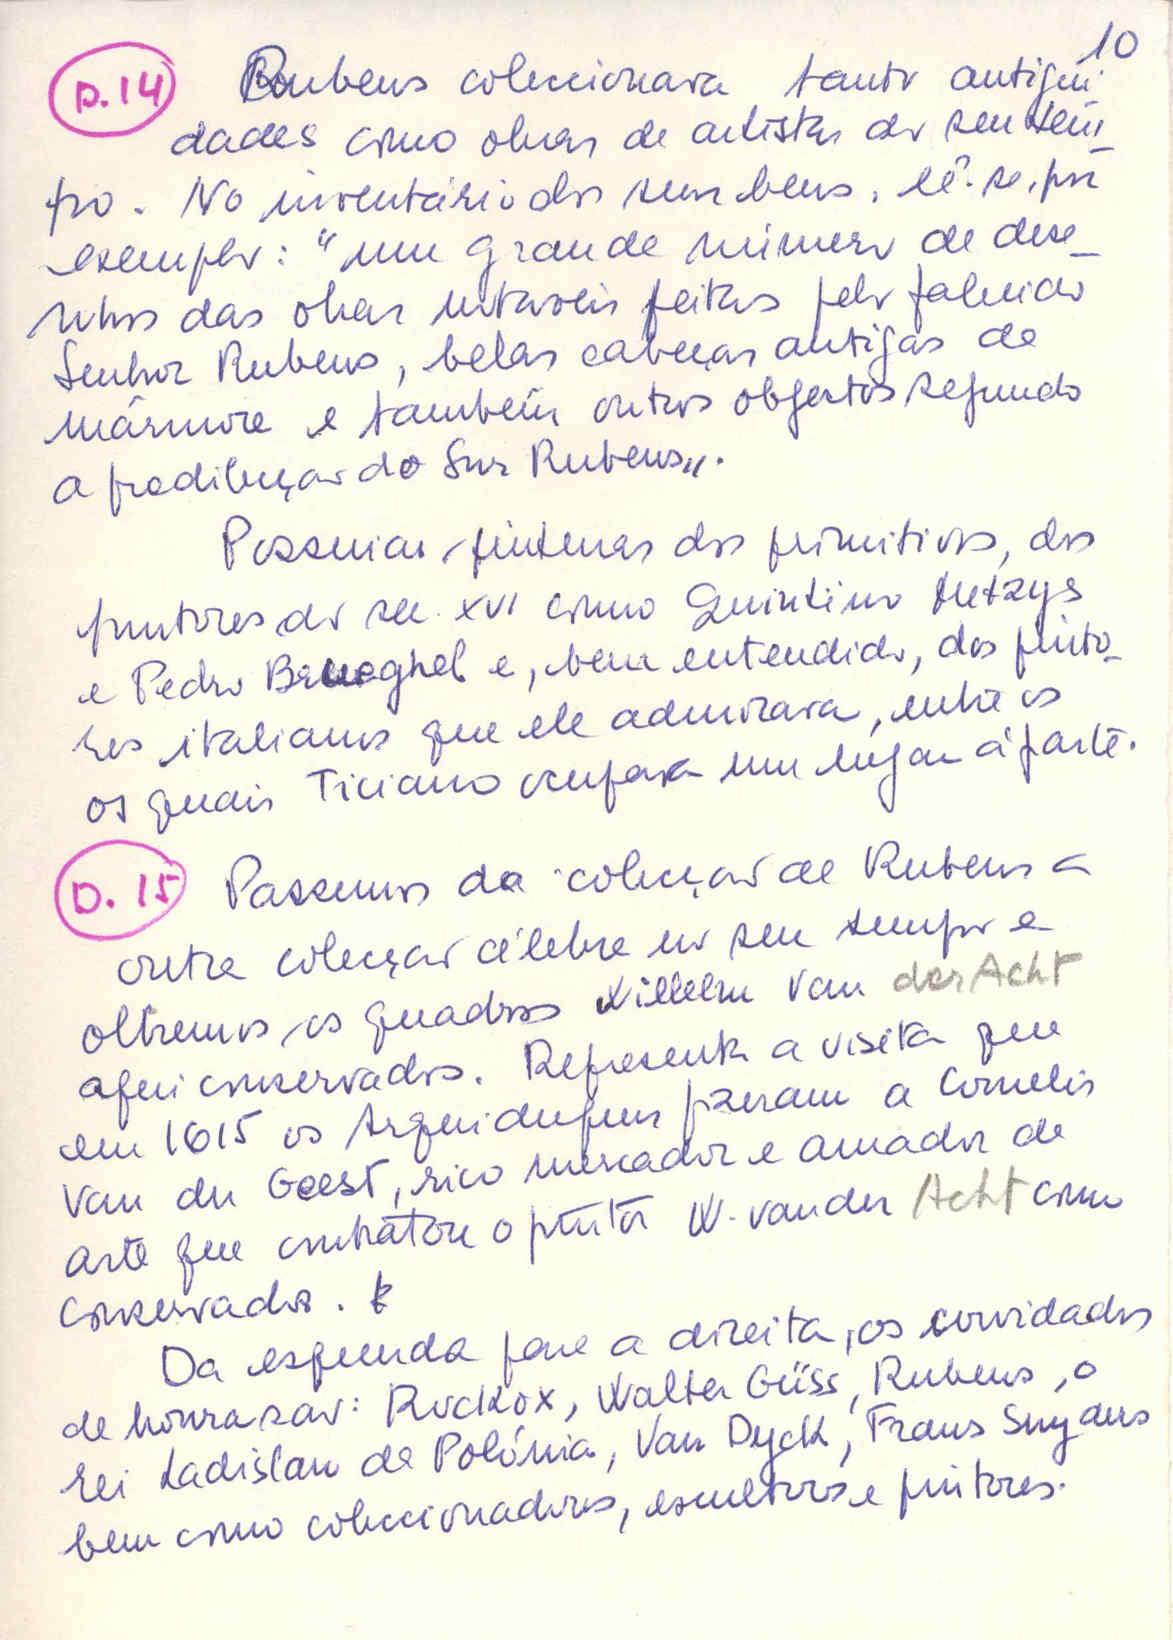 10
D.14 Rubens coleccionava tanto antigui
dades como obras de artistas do seu tem
po. No inventário dos seus bens, lê-se, por
exemplo: "um grande número de dese_
nhos das obras notaveis feitas pelo falecido
Senhor Rubens, belas cabeças antigas de
mármore e também outros objectos segundo
a predileção do Snr Rubens".
Possuia pinturas dos primitivos, dos
pintores do sec. XVI como Quintino Metzys
e Pedro Brueghel e, bem entendido, dos pinto_
res italianos que ele admirava, entre os
os quais Ticiano ocupava um lugar à parte.
D.15 Passemos da colecção de Rubens a
outra colecção célebre no seu tempo e
olhemos os quadros Willelm van der Acht
aqui conservados. Representa a visita que
em 1615 os Arquiduques fizeram a Cornelis
Van der Geest, rico mercador e amador de
arte que contratou o pintor W. van der Acht como
conservador.
Da esquerda para a direita, os convidados
de honra são: Rockox, Walter Güss, Rubens, o
rei Ladislau da Polónia, Van Dyck, Frans Snyders
bem como coleccionadores, escultores e pintores.